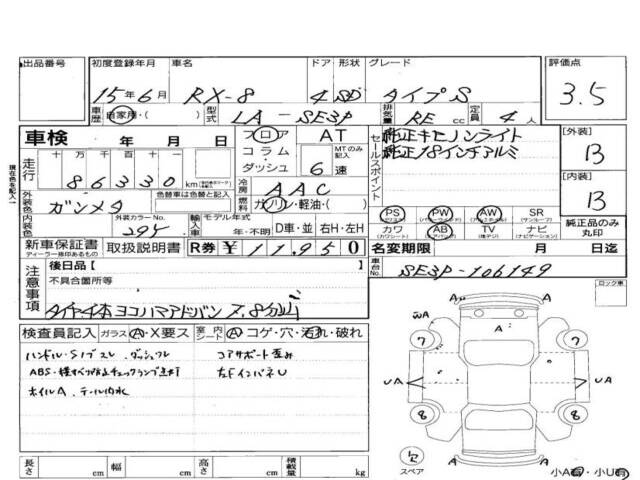 出品番号 初度登録年月 車名 ドア 形状 グレード 評価点
15年6月 RX-8 4 SD タイプS 3.5
車歴 自家用・( ) 型式 LA-SE3P 排気量 RE cc 定員 4人
車検 年 月 日 フロア AT 純正キセノンライト [外装]
走行 十万千百十一 コラム・ダッシュ MTのみ記入 6速 セールスポイント 純正18インチアルミ B
86330 km
現在色を記入 色替車は色替と記入 冷房 AAC [内装]
外装色 ガンメタ 燃料 ガソリン・軽油・( ) B
PS PW AW SR
内装色 外装カラーNo. 29Y 輸入車 モデル年式 年・不明 D車・並 右H・左H カワ AB TV ナビ 純正品のみ丸印
新車保証書 取扱説明書 R券 ¥11950 名変期限 月 日迄
ディーラー捺印あるもの
注意事項 後日品[ ] 車台No. SE3P-106149
不具合箇所等 ロック車
タイヤ4本ヨコハマアドバン 7.8分山
検査員記入 ガラス A・X要ス 室内シート A コゲ・穴・汚れ・破れ
ハンドル・Sノブスレ コアサポート歪み
ABS・横すべり防止チェックランプ点灯 左FインパネU
ホイルA テール内水
UA A A
7 7
UA A UA
8 8
A A A
スペア
長さ cm 幅 cm 高さ cm 積載量 kg 小A有・小U有